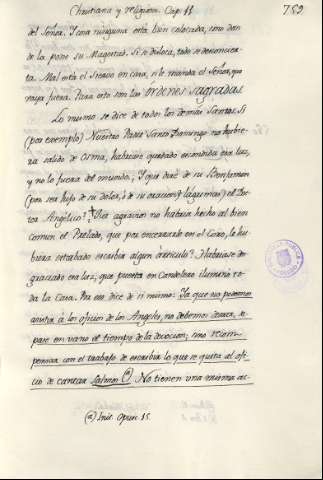 Christiana y Religiosa. Cap. 11.
759
del Señor. Y cosa ninguna está bien colocada, sino don
de la pone su Magestad. Si se disloca, todo se desconcier
ta. Mal está el Siervo en casa, si le manda el Señor, que
vaya fuera. Para esto son las ordenes sagradas
Lo mismo se dice de todos los demas Santos. Si
(por exemplo) Nuestro Padre Santo Domingo no hubie
ra salido de Osma, habiase quedado escondida esa luz,
y no lo fuera del mundo. Y que diré de su Benjamin
(por ser hijo de su dolor, ó de su oracion y lágrimas) el Doc
tor Angelico? Que agravio no habria hecho al bien
comun el Prelado, que por encerrarlo en el Coro, le hu
biera estorbado escribir algun articulo? Habiase de
graciado esa luz, que puesta en Candelero iluminó to
da la Casa. Por eso dice de si mismo: Ya que no podemos
asistir á los oficios de los Angeles, no debemos dexar, se
pase en vano el tiempo de la devocion; sino recom
pensar con el trabajo de escribir lo que se quita al ofi
cio de cantar Salmos (a). No tienen una misma ac
(a) Init. Opusc. 15.